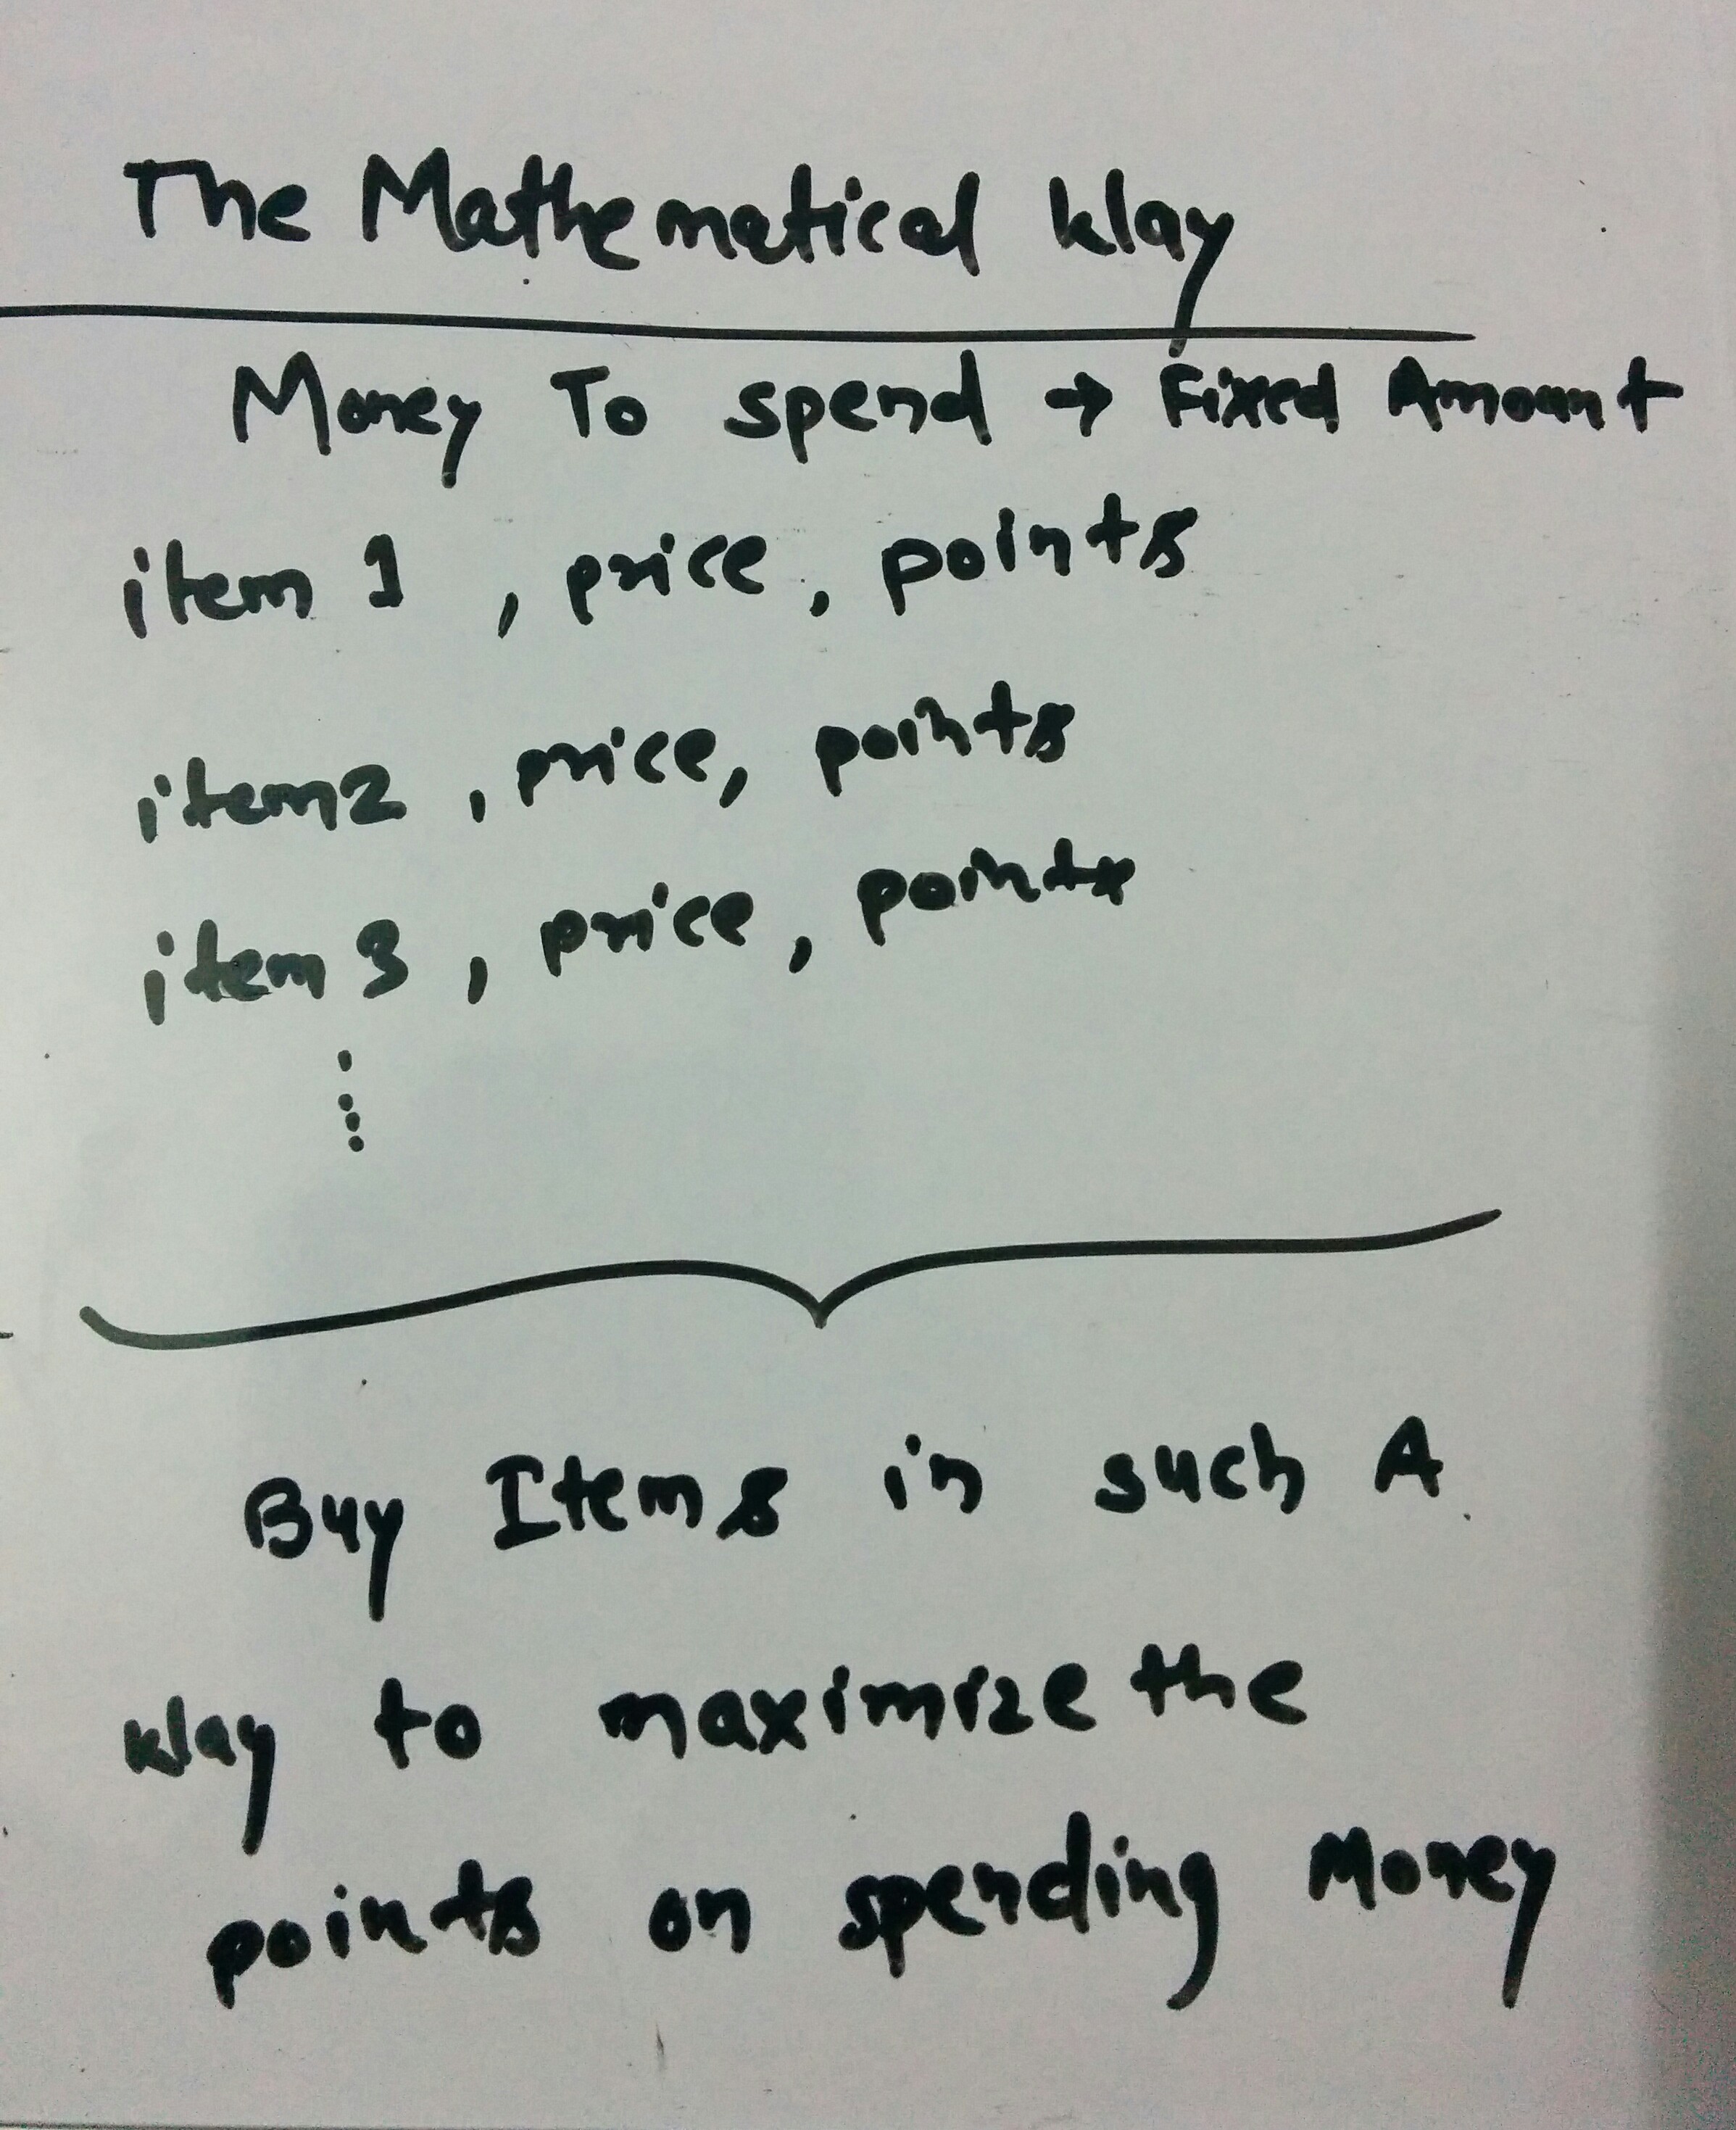 The Mathematical Way
Money To spend → Fixed Amount
item 1 , price, points
item2 , price, points
item 3 , price, points
⋮
Buy Items in such A
Way to maximize the
points on spending Money